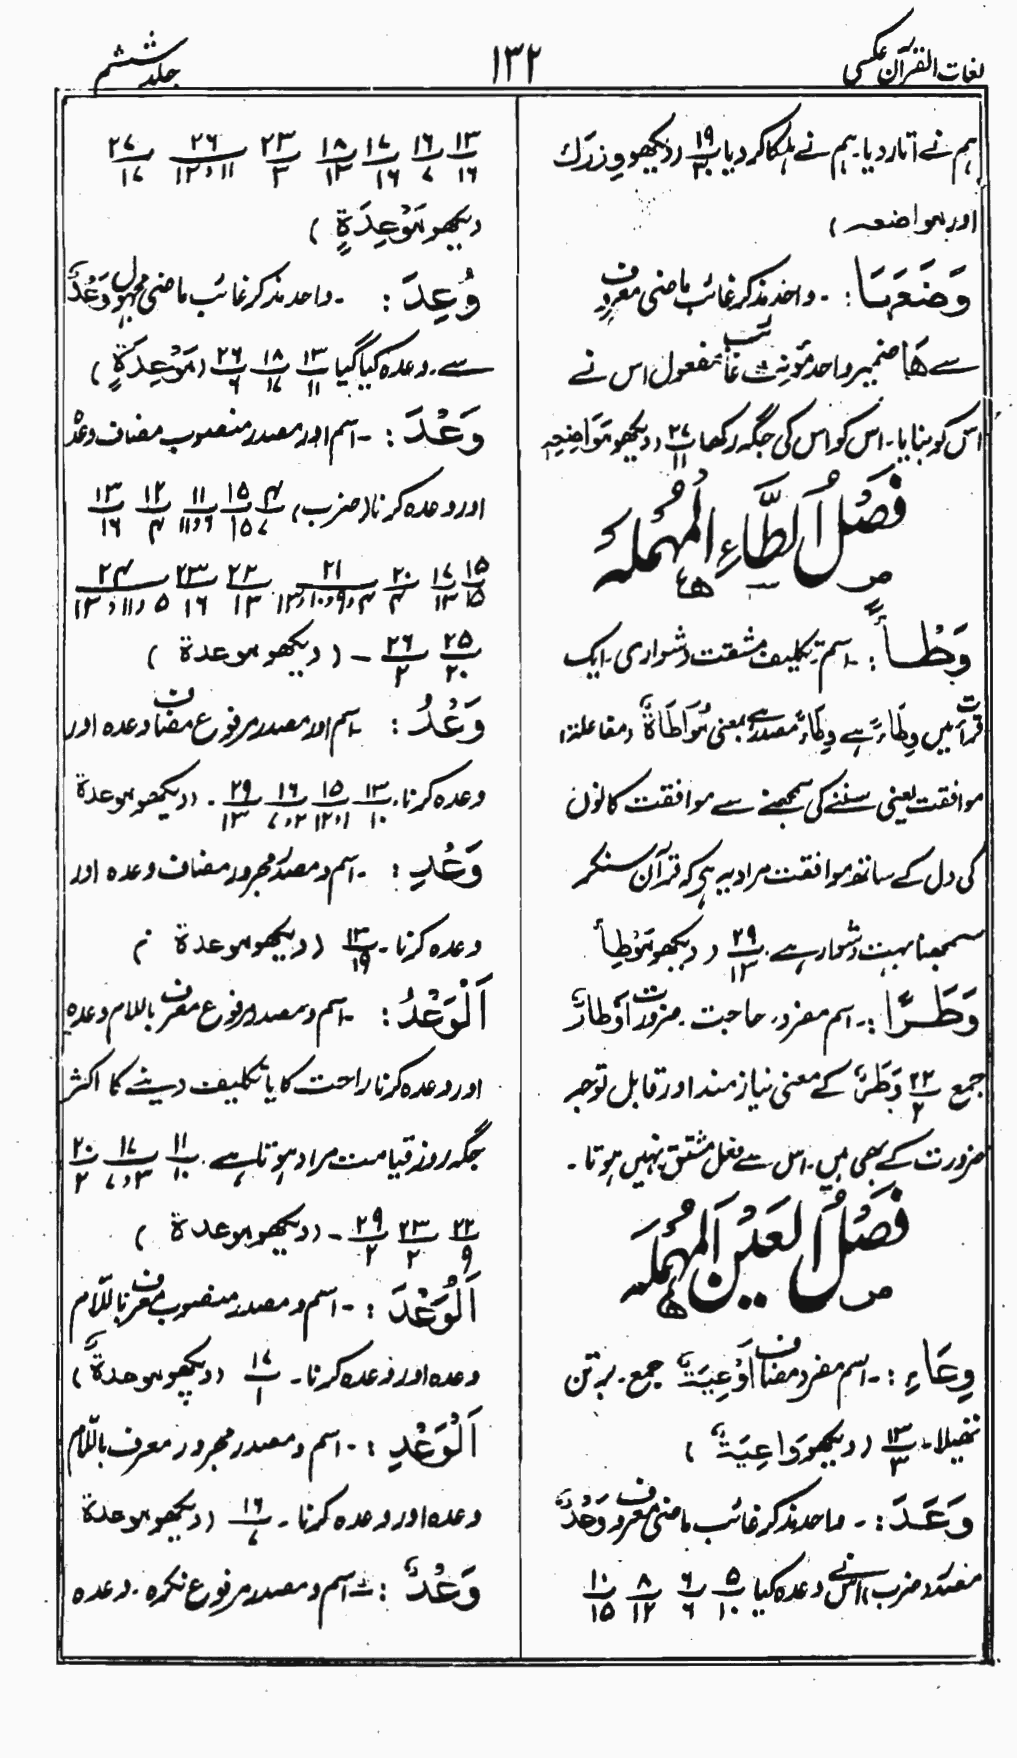 لغات القرآن عکسی
۱۳۲
جلد ششم
ہم نے اتار دیا۔ ہم نے ہلکا کر دیا ۱۹/۳۰ (دیکھو وِزرَكَ
اور مواضعہ)
وَضَعَهَا :۔ واحد مذکر غائب ماضی معروف
سے هَا ضمیر واحد مؤنث غائب مفعول اس نے
اس کو بنایا۔ اس کو اس کی جگہ رکھا ۲۷/۱۱ (دیکھو مَوَاضِعِہٖ
فَصْلُ الطَّاءِ الْمُهْمَلَه
وَطْأً :۔ اسم۔ تکلیف مشقت دشواری۔ ایک
قرأت میں وِطَاءً ہے وِطَاءً مصدر ہے بمعنی مُوَاطَاةٌ (مفاعلة)
موافقت یعنی سننے کی سمجھنے سے موافقت کانوں
کی دل کے ساتھ موافقت مراد یہ ہے کہ قرآن سنکر
سمجھنا بہت دشوار ہے۔ ۲۹/۱۳ (دیکھو مَوْطِأً
وَطَرًا :۔ اسم مفرد، حاجت۔ ضرورت اَوْطَارٌ
جمع ۲۲/۲ وَطَرٌ کے معنی نیازمند اور قابل توجہ
ضرورت کے بھی ہیں۔ اس سے فعل مشتق نہیں ہوتا۔
فَصْلُ الْعَيْنِ الْمُهْمَلَه
وِعَاءِ :۔ اسم مفرد مضاف اَوْعِيَةٌ جمع۔ برتن
تھیلا۔ ۱۳/۳ (دیکھو وَاعِيَةٌ)
وَعَدَ :۔ واحد مذکر غائب ماضی معروف وَعْدٌ
مصدر (ضرب) اس نے وعدہ کیا ۵/۱۰ ۶/۶ ۸/۱۲ ۱۰/۱۵
۱۳/۱۶ ۱۶/۷ ۱۷/۱۶ ۱۸/۱۳ ۲۳/۳ ۲۶/۱۱و۱۲ ۲۷/۱۷
دیکھو مَوْعِدَةٍ)
وُعِدَ :۔ واحد مذکر غائب ماضی مجہول وَعْدٌ
سے۔ وعدہ کیا گیا ۱۳/۱۱ ۱۸/۱۷ ۲۶/۶ (مَوْعِدَةٍ)
وَعْدَ :۔ اسم اور مصدر منصوب مضاف وعدہ
اور وعدہ کرنا (ضرب) ۴/۷ ۱۵/۱۵ ۱۱/۶و۱۱ ۱۲/۴ ۱۳/۱۶
۱۵/۱۵ ۱۷/۱۳ ۲۰/۴ ۲۱/۴و۹و۱۰و۱۳ ۲۳/۱۳ ۲۳/۱۶ ۲۴/۵و۱۱و۱۳
۲۵/۲۰ ۲۶/۲ ۔ (دیکھو موعدة)
وَعْدُ :۔ اسم اور مصدر مرفوع مضاف وعدہ اور
وعدہ کرنا۔ ۱۳/۱۰ ۱۵/۱و۱۲ ۱۶/۲و۷ ۲۹/۱۳ ۔ (دیکھو موعدة
وَعْدِ :۔ اسم و مصدر مجرور مضاف وعدہ اور
وعدہ کرنا۔ ۱۳/۱۹ (دیکھو موعدة )
اَلْوَعْدُ :۔ اسم و مصدر مرفوع معرف باللام وعدہ
اور وعدہ کرنا راحت کا یا تکلیف دینے کا اکثر
جگہ روز قیامت مراد ہوتا ہے۔ ۱۱/۱۰ ۱۷/۳و۷ ۲۰/۲
۲۲/۹ ۲۳/۲ ۲۹/۲ ۔ (دیکھو موعدة )
اَلْوَعْدَ :۔ اسم و مصدر منصوب معرف باللّام
وعدہ اور وعدہ کرنا۔ ۱۷/۱ (دیکھو موعدةٌ)
اَلْوَعْدِ :۔ اسم و مصدر مجرور معرف باللّام
وعدہ اور وعدہ کرنا ۔ ۱۶/۷ (دیکھو موعدة
وَعْدٌ :۔ اسم و مصدر مرفوع نکرہ۔ وعدہ